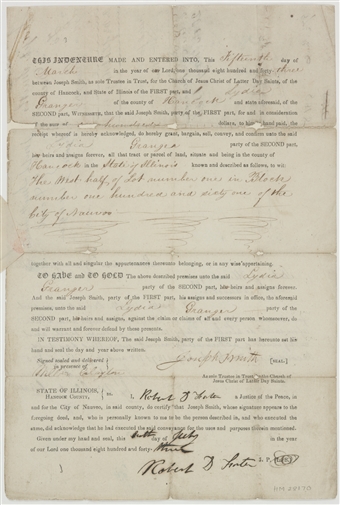 THIS INDENTURE MADE AND ENTERED INTO, This Fifteenth day of
March in the year of our Lord, one thousand eight hundred and forty-three
between Joseph Smith, as sole Trustee in Trust, for the Church of Jesus Christ of Latter Day Saints, of the
county of Hancock, and State of Illinois of the FIRST part, and Lydia
Granger of the county of Hancock and state aforesaid, of the
SECOND part, WITNESSETH, that the said Joseph Smith, party of the FIRST part, for and in consideration
of the sum of dollars, to him in hand paid, the
receipt whereof is hereby acknowledged, do hereby grant, bargain, sell, convey, and confirm unto the said
Lydia Granger party of the SECOND part,
her heirs and assigns forever, all that tract or parcel of land, situate and being in the county of
Hancock in the State of Illinois known and described as follows, to wit:
The West half of Lot number one in Block
number one hundred and sixty one of the
City of Nauvoo
together with all and singular the appurtenances thereunto belonging, or in any wise appertaining.
TO HAVE and TO HOLD The above described premises unto the said Lydia
Granger party of the SECOND part, her heirs and assigns forever.
And the said Joseph Smith, party of the FIRST part, his assigns and successors in office, the aforesaid
premises, unto the said Lydia Granger party of the
SECOND part, her heirs and assigns, against the claim or claims of all and every person whomsoever, do
and will warrant and forever defend by these presents.
IN TESTIMONY WHEREOF, The said Joseph Smith, party of the FIRST part has hereunto set his
hand and seal the day and year above written.
Signed sealed and delivered
in presence of
Joseph Smith [SEAL.]
William Clayton
As sole Trustee in Trust for the Church of
Jesus Christ of Latter Day Saints.
STATE OF ILLINOIS,
HANCOCK COUNTY,
ss. I, Robert D Foster a Justice of the Peace, in
and for the City of Nauvoo, in said county, do certify that Joseph Smith, whose signature appears to the
foregoing deed, and who is personally known to me to be the person described in, and who executed the
same, did acknowledge that he had executed the said conveyance for the uses and purposes therein mentioned.
Given under my hand and seal, this day of July in the year
of our Lord one thousand eight hundred and forty-three
Robert D Foster J. P.